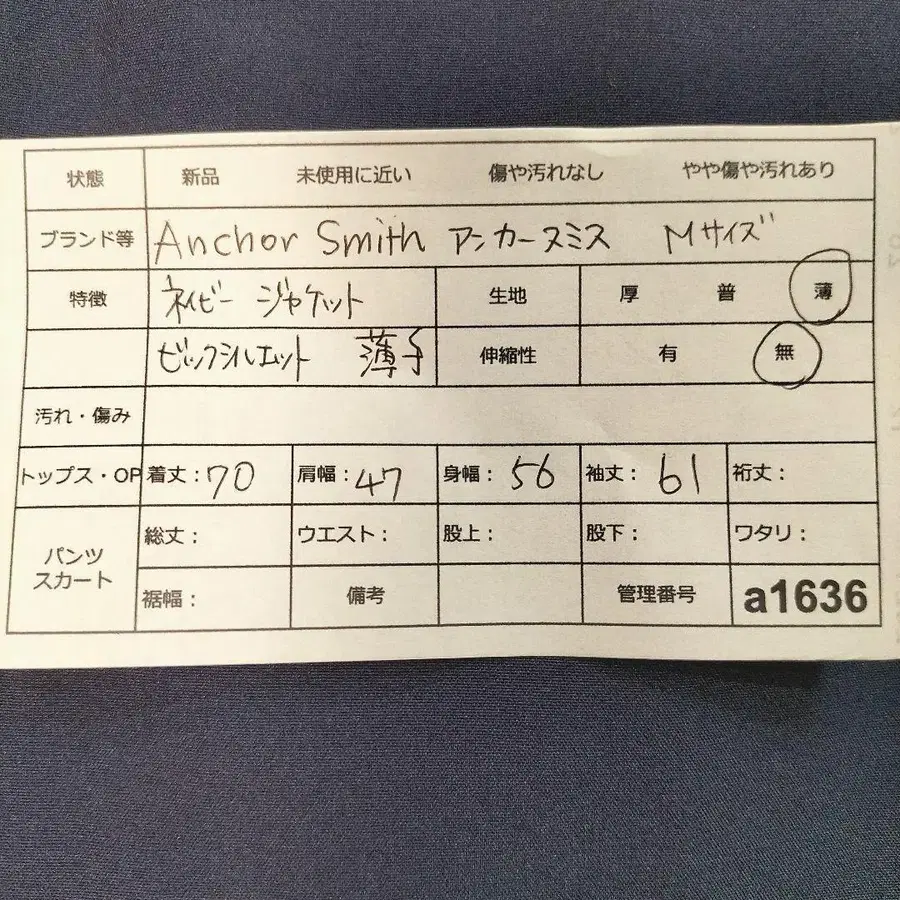 状態 新品 未使用に近い 傷や汚れなし やや傷や汚れあり
ブランド等 Anchor Smith アンカースミス Mサイズ
特徴 ネイビー ジャケット 生地 厚 普 薄
ビックシルエット 薄手 伸縮性 有 無
汚れ・傷み
トップス・OP 着丈：70 肩幅：47 身幅：56 袖丈：61 裄丈：
パンツ
スカート
総丈： ウエスト： 股上： 股下： ワタリ：
裾幅： 備考 管理番号 a1636